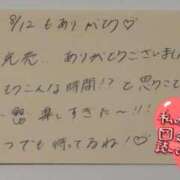 8/12もありがとう♡
完売.. ありがとうございま
てこんな時間!?と思うこて
楽しすぎた〜!!
つでも待ってるね!♡
私
回
読